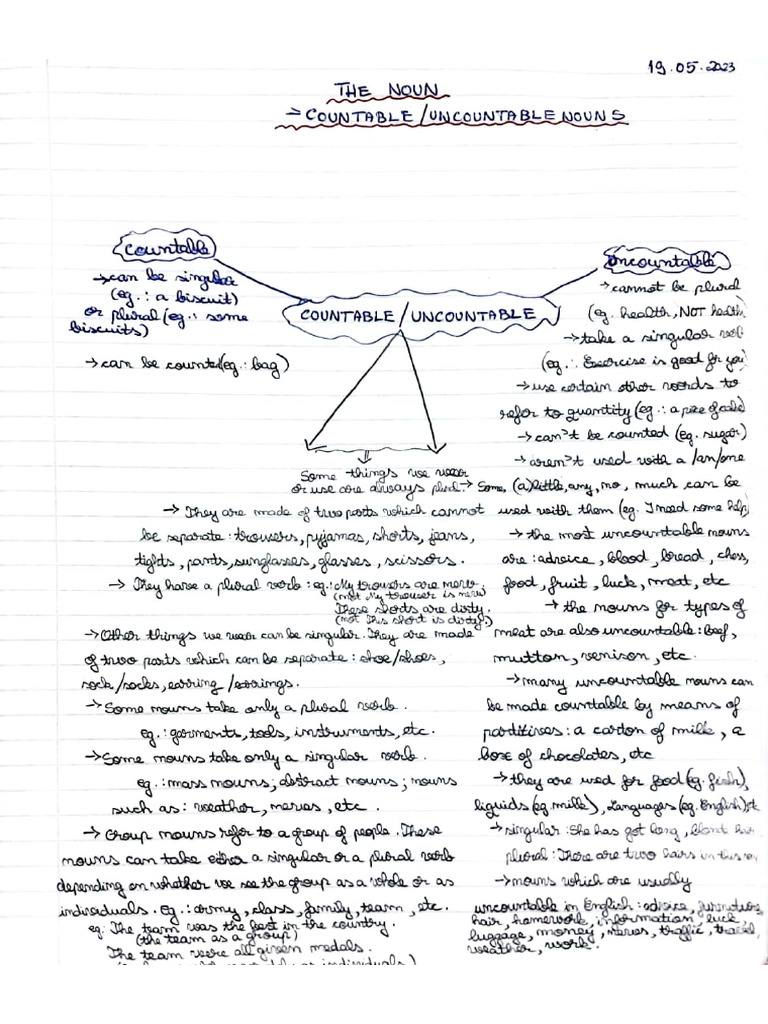 19.05.2023
THE NOUN
→ COUNTABLE/UNCOUNTABLE NOUNS
countable
→ can be singular
(eg.: a biscuit)
or plural (eg.: some
biscuits)
→ can be counted (eg.: bag)
COUNTABLE/UNCOUNTABLE
uncountable
→ cannot be plural
(eg. health, NOT health
→ take a singular verb
(eg.: Exercise is good for you)
→ use certain other words to
refer to quantity (eg.: a piece of cake)
→ can't be counted (eg. sugar)
→ aren't used with a/an/one
→ Some, (a) little, any, no, much can be
used with them (eg. I need some help)
→ the most uncountable nouns
are: advice, blood, bread, chess,
food, fruit, luck, meat, etc
→ the nouns for types of
meat are also uncountable: beef,
mutton, venison, etc.
→ many uncountable nouns can
be made countable by means of
partitives: a carton of milk, a
box of chocolates, etc
→ they are used for food (eg. fish),
liquids (eg. milk), Languages (eg. English),
→ singular: She has got long, blond hair
plural: There are two hairs in this
→ nouns which are usually
uncountable in English: advice, furniture,
hair, homework, information, luck,
luggage, money, news, traffic, travel,
weather, work.
Some things we wear
or use are always plural.
→ They are made of two parts which cannot
be separate: trousers, pyjamas, shorts, jeans,
tights, pants, sunglasses, glasses, scissors.
→ They have a plural verb: eg.: My trousers are new.
(not My trouser is new)
These shorts are dirty.
(not This short is dirty.)
→ Other things we wear can be singular. They are made
of two parts which can be separate: shoe/shoes,
sock/socks, earring/earrings.
→ Some nouns take only a plural verb.
eg.: garments, tools, instruments, etc.
→ Some nouns take only a singular verb.
eg.: mass nouns; abstract nouns; nouns
such as: weather, news, etc.
→ Group nouns refer to a group of people. These
nouns can take either a singular or a plural verb
depending on whether we see the group as a whole or as
individuals. eg.: army, class, family, team, etc.
eg. The team was the best in the country.
(the team as a group)
The team were all given medals.
as individuals)